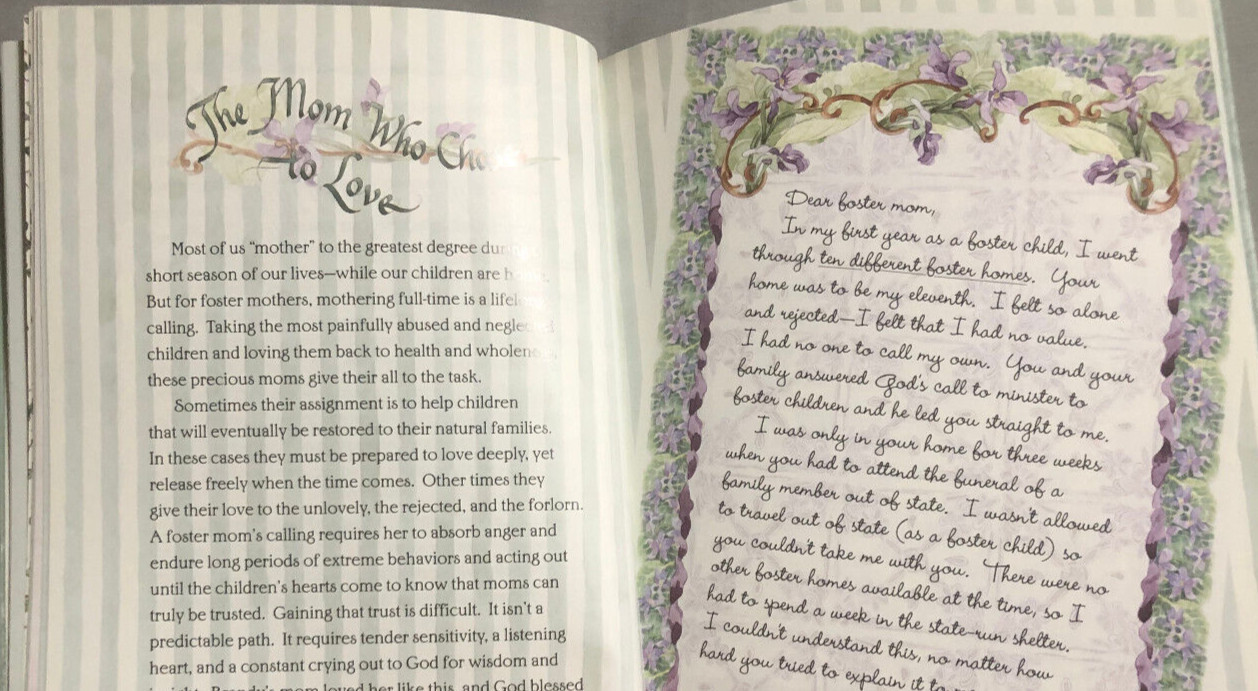 The Mom Who
to Love
Most of us “mother” to the greatest degree
short season of our lives—while our children are
But for foster mothers, mothering full-time is a
calling. Taking the most painfully abused and
children and loving them back to health and
these precious moms give their all to the task.
Sometimes their assignment is to help children
that will eventually be restored to their natural families.
In these cases they must be prepared to love deeply, yet
release freely when the time comes. Other times they
give their love to the unlovely, the rejected, and the forlorn.
A foster mom's calling requires her to absorb anger and
endure long periods of extreme behaviors and acting out
until the children's hearts come to know that moms can
truly be trusted. Gaining that trust is difficult. It isn't a
predictable path. It requires tender sensitivity, a listening
heart, and a constant crying out to God for wisdom and
mom loved her like this, and God blessed
Dear foster mom,
In my first year as a foster child, I went
through ten different foster homes. Your
home was to be my eleventh. I felt so alone
and rejected—I felt that I had no value.
I had no one to call my own. You and your
family answered God's call to minister to
foster children and he led you straight to me.
I was only in your home for three weeks
when you had to attend the funeral of a
family member out of state. I wasn't allowed
to travel out of state (as a foster child) so
you couldn't take me with you. There were no
other foster homes available at the time, so I
had to spend a week in the state-run shelter.
I couldn't understand this, no matter how
hard you tried to explain it to